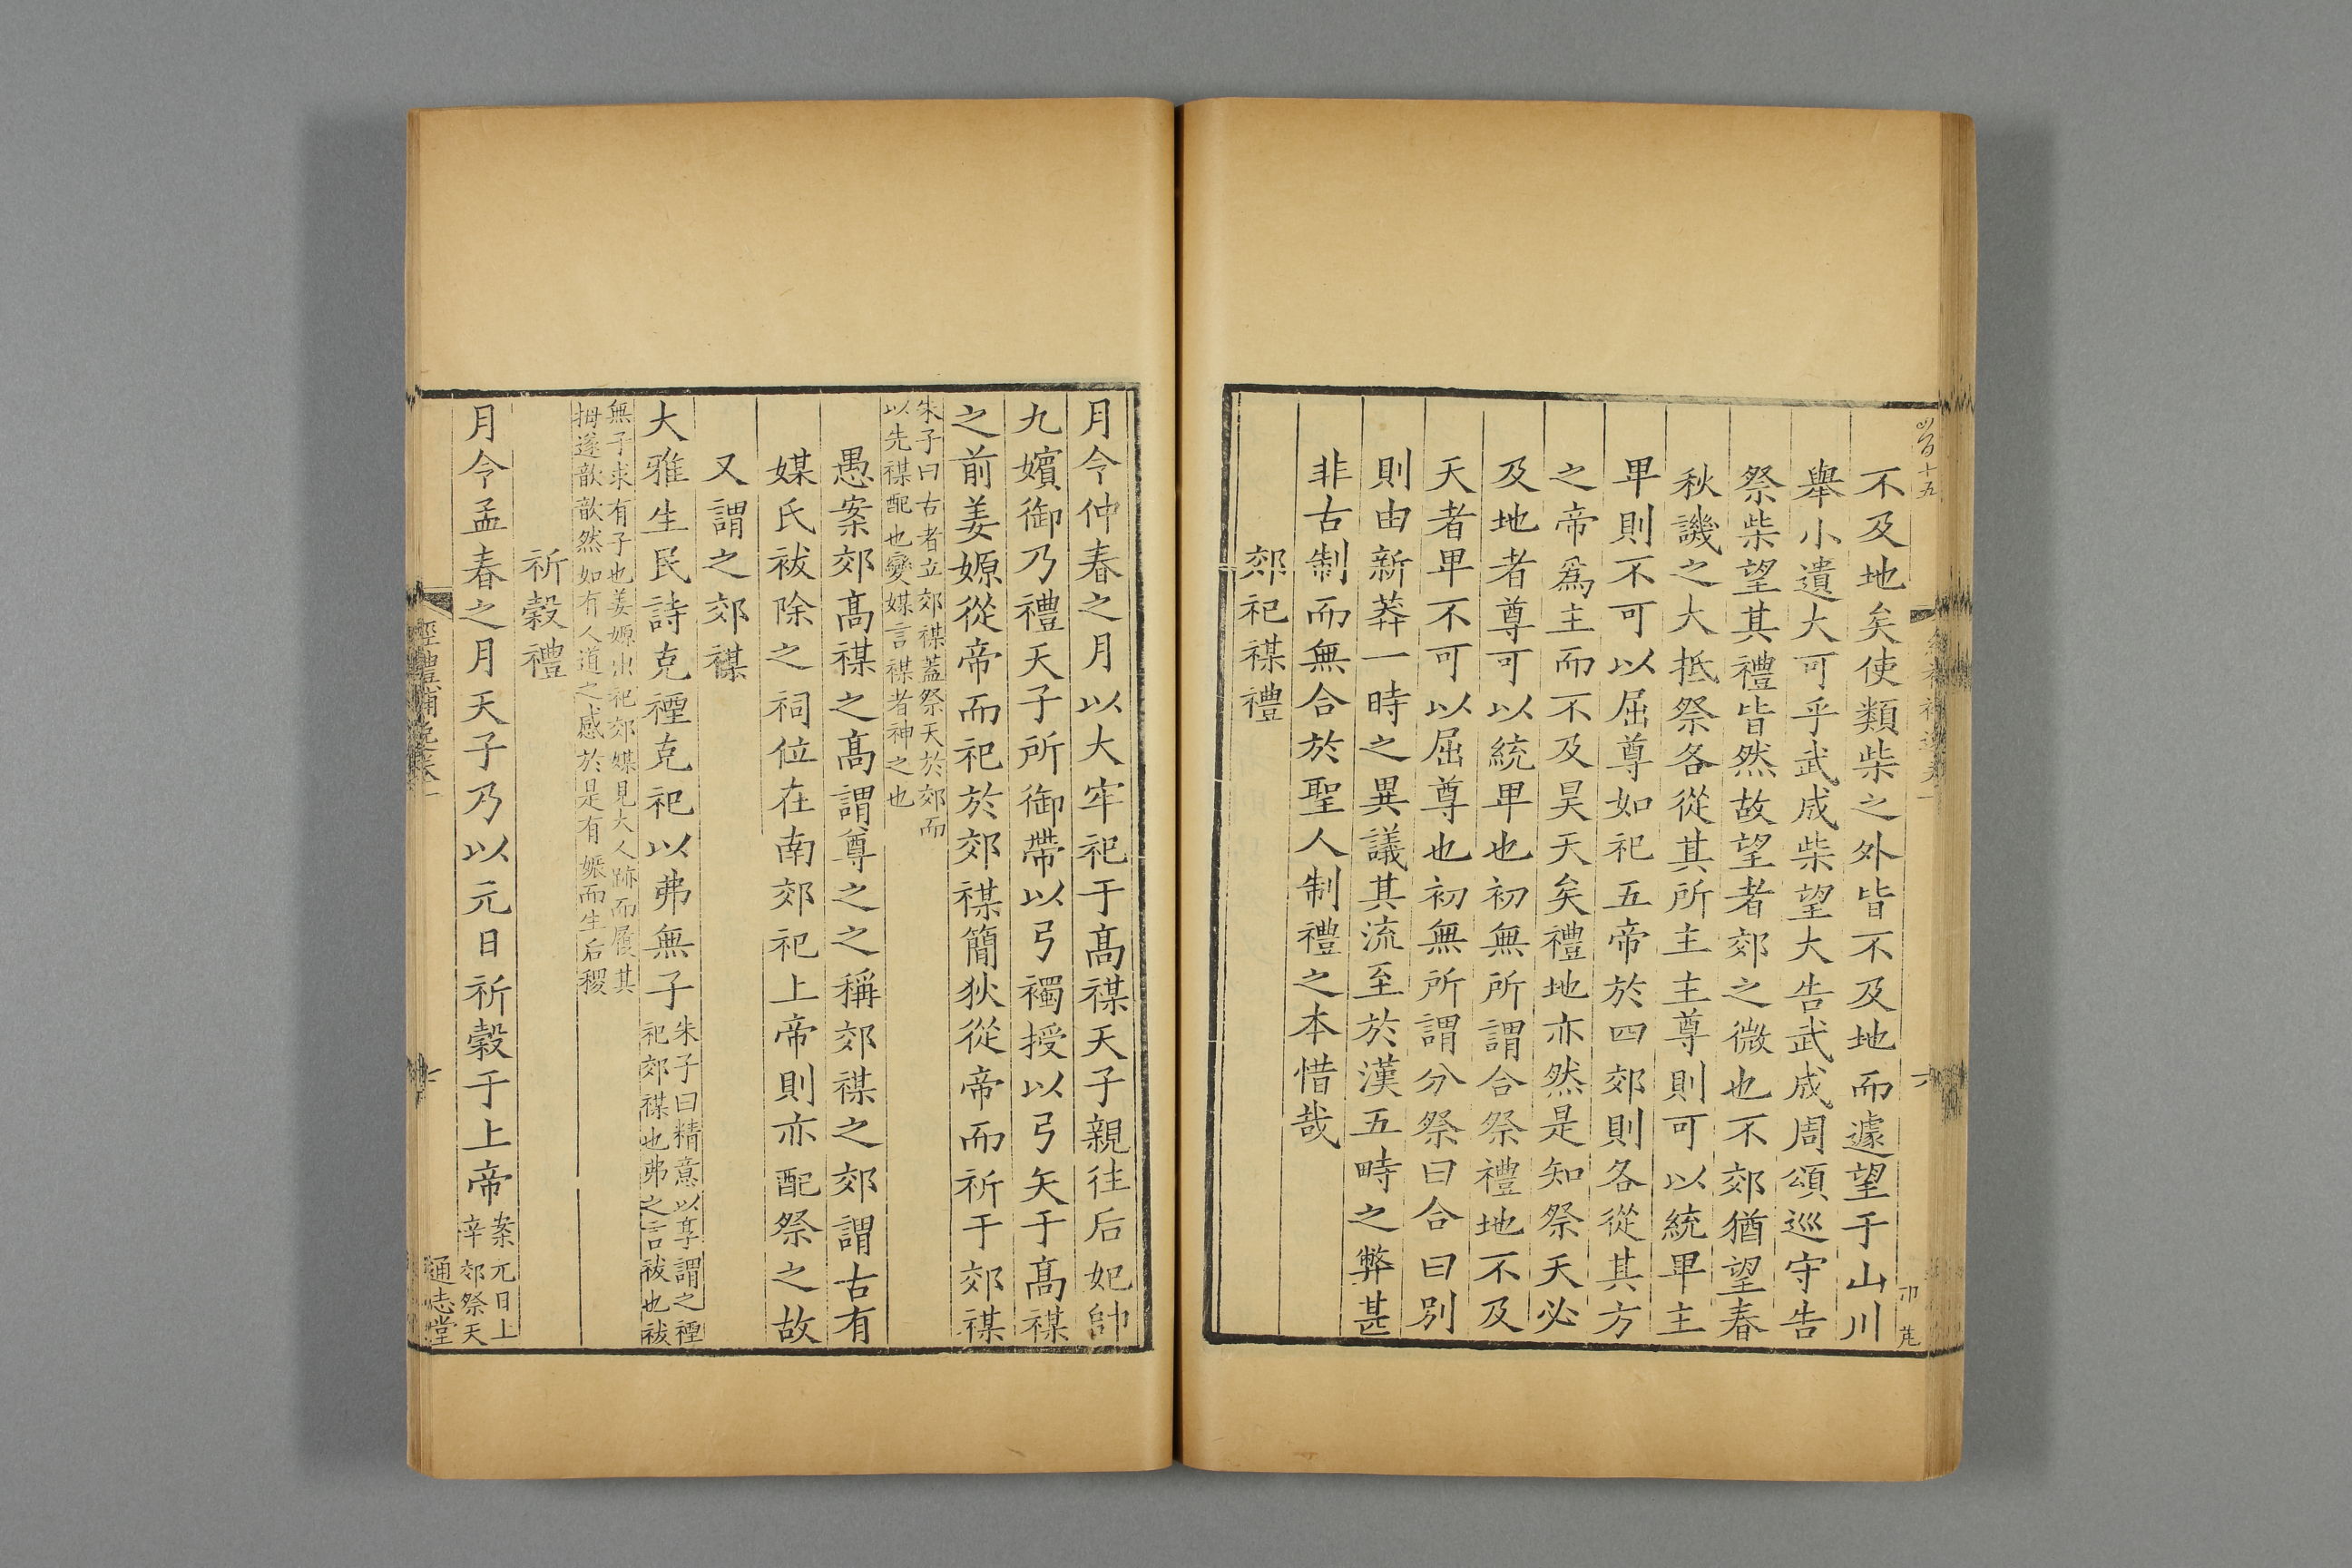 不及地矣使類柴之外皆不及地而遽望于山川
舉小遺大可乎武成柴望大告武成周頌巡守告
祭柴望其禮皆然故望者郊之微也不郊猶望春
秋譏之大抵祭各從其所主主尊則可以統卑主
卑則不可以屈尊如祀五帝於四郊則各從其方
之帝爲主而不及昊天矣禮地亦然是知祭天必
及地者尊可以統卑也初無所謂合祭禮地不及
天者卑不可以屈尊也初無所謂分祭曰合曰別
則由新莽一時之異議其流至於漢五畤之弊甚
非古制而無合於聖人制禮之本惜哉
郊祀禖禮
月令仲春之月以大牢祀于高禖天子親往后妃帥
九嬪御乃禮天子所御帶以弓韣授以弓矢于高禖
之前姜嫄從帝而祀於郊禖簡狄從帝而祈于郊禖
朱子曰古者立郊禖蓋祭天於郊而
以先禖配也變媒言禖者神之也
愚案郊高禖之高謂尊之之稱郊禖之郊謂古有
媒氏祓除之祠位在南郊祀上帝則亦配祭之故
又謂之郊禖
大雅生民詩克禋克祀以弗無子
朱子曰精意以享謂之禋
祀郊禖也弗之言祓也祓
無子求有子也姜嫄出祀郊媒見大人跡而履其
拇遂歆歆然如有人道之感於是有娠而生后稷
祈穀禮
月令孟春之月天子乃以元日祈穀于上帝
案元日上
辛郊祭天
通志堂